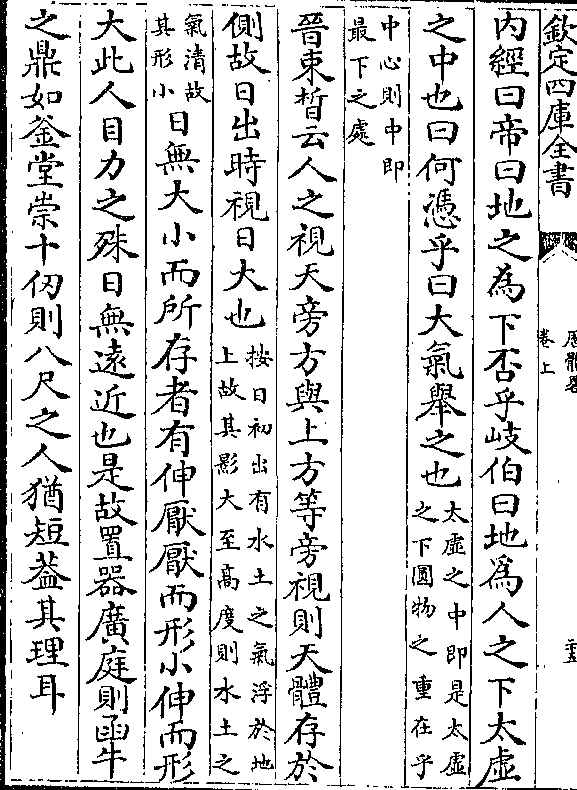 欽定四庫全書
卷上
內經曰帝曰地之為下否乎岐伯曰地為人之下太虛
之中也曰何憑乎曰大氣舉之也太虛之中即是太虛
之下圓物之重在乎
中心則中即
最下之處
晉束晳云人之視天旁方與上方等旁視則天體存於
側故日出時視日大也按日初出有水土之氣浮於地
上故其影大至高度則水土之
氣清故
其形小日無大小而所存者有伸厭厭而形小伸而形
大此人目力之殊日無遠近也是故置器廣庭則函牛
之鼎如釜堂崇十仞則八尺之人猶短葢其理耳